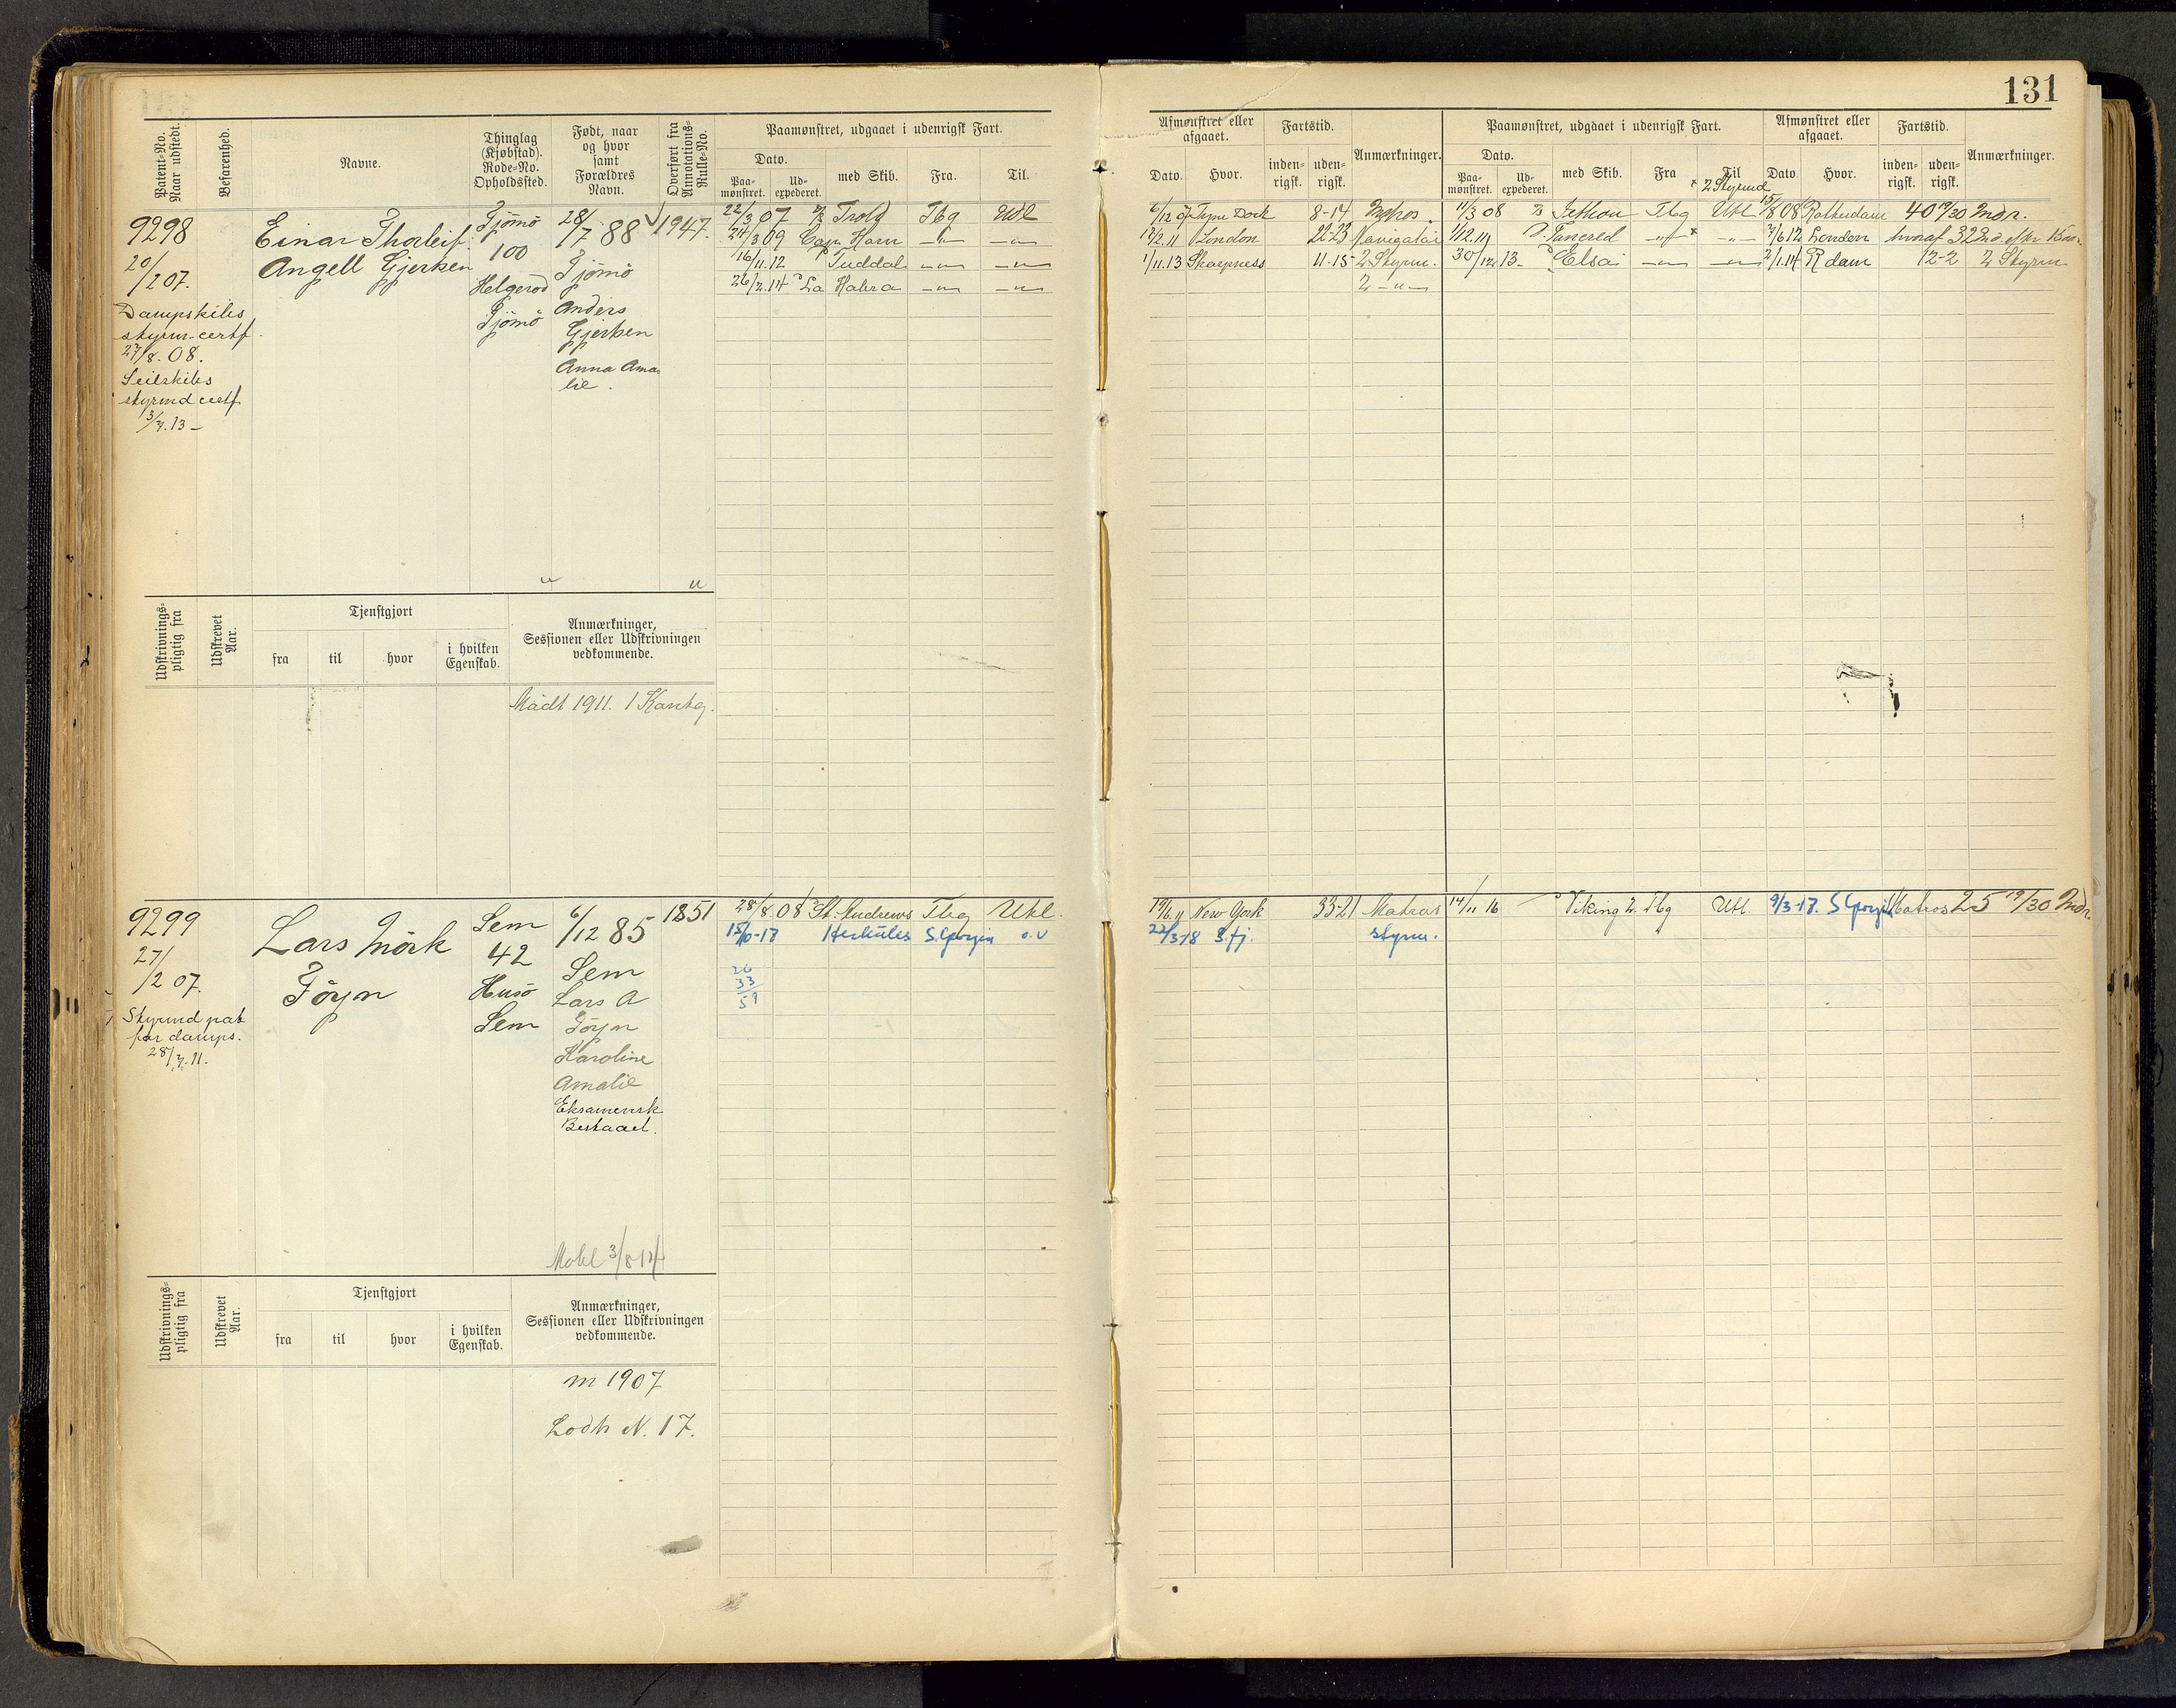 131
Patent-No. Naar udstedt.
Befarenhed.
Navne.
Thinglag (Kjøbstad). Rode-No. Opholdssted.
Født, naar og hvor samt Forældres Navn.
Overført fra Annotations-Rulle-No.
Paamønstret, udgaaet i udenrigsk Fart.
Dato.
Paa-mønstret.
Ud-expederet.
med Skib.
Fra.
Til.
Afmønstret eller afgaaet.
Dato.
Hvor.
Fartstid.
inden-rigsk.
uden-rigsk.
Anmærkninger.
Paamønstret, udgaaet i udenrigsk Fart.
Dato.
Paa-mønstret.
Ud-expederet.
med Skib.
Fra
Til
Afmønstret eller afgaaet.
Dato.
Hvor.
Fartstid.
inden-rigsk.
uden-rigsk.
Anmærkninger.
9298
20/2 07.
Dampskibs
styrm. certf.
27/8. 08.
Seilskibs
styrmd certf
3/7. 13 -
Einar Thorleif
Angell Gjersken
Tjömö
100
Helgerød
Tjömö
28/7 88
Tjömö
Anders
Gjersken
Anna Ama-
lie.
1947.
22/3 07 Trold Tbg Udl
24/3 09 Cap Horn -"- -"-
16/11.12 Tuddal -"- -"-
26/2.14 La Habra -"- -"-
6/12 07 Tyne Dock 8-14 Matros.
12/2.11 London 22-23 Navigatør
1/11.13 Skarpness 11-15 2 Styrm.
2 -"-
2 Styrmd
11/3 08 Tbg Utl 15/8 08 Rotterdam 40 19/30 Mdr.
1/12.11 Tancred -"- -"- 7/6 12 London hvoraf 32
30/12 13 - Elsa -"- -"- 2/1.14 R dam 2-2 2 Styrm
Udskrivnings-pligtig fra
Udskrevet Aar.
Tjenstgjort
fra
til
hvor
i hvilken Egenskab.
Anmærkninger, Sessionen eller Udskrivningen vedkommende.
Mødt 1911.
9299
27/2 07.
Styrmd pat
for damps.
28/7.11.
Lars Mörk
Föyn
Sem
42
Husö
Sem
6/12 85
Sem
Lars A
Föyn
Karoline
Amalie
Eksamensk
Bestaaet.
1851
28/8.08 St. Andrews Tbg Utl.
15/10-17 Herkules S. Georgia o.v
26
33
59
19/6.11 New York 33-21 Matros
22/3 18 S. fj. styrm.
14/11 16 Viking 2 Tbg Utl. 9/3-17. S Georgia Matros 25 19/30 Mdr.
Mobl 3/8 14
Udskrivnings-pligtig fra
Udskrevet Aar.
Tjenstgjort
fra
til
hvor
i hvilken Egenskab.
Anmærkninger, Sessionen eller Udskrivningen vedkommende.
m 1907
Lodtr N. 17.